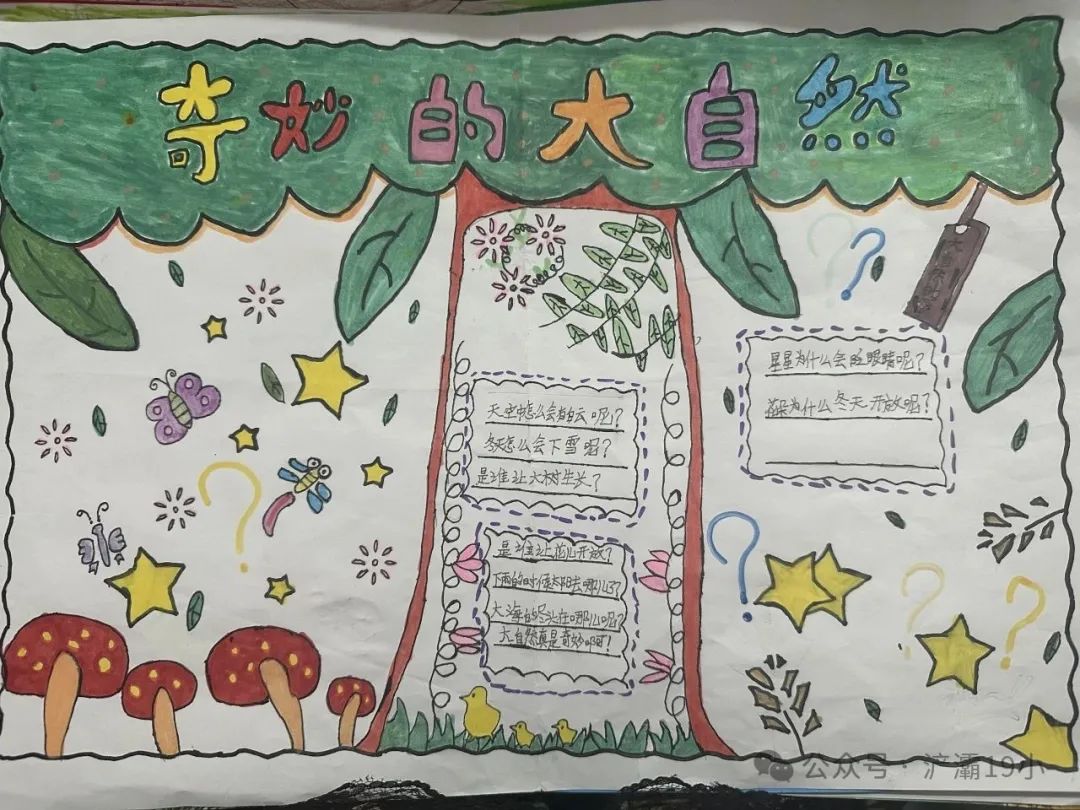 奇妙的大自然
天空怎么会有白云呢？
冬天怎么会下雪呢？
是谁让大树生长？
是谁让花儿开放？
下雨的时候太阳去哪儿了？
大海的尽头在哪儿呢？
大自然真是奇妙啊！
星星为什么会眨眼睛呢？
花朵为什么冬天开放呢？
公众号·浐灞19小